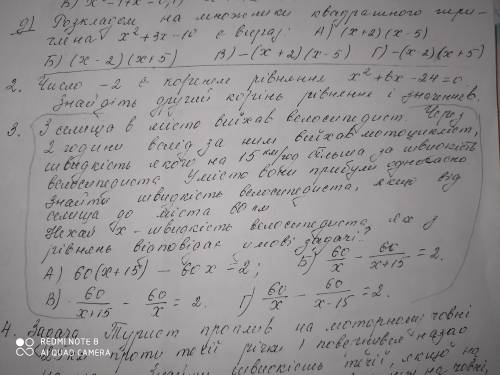 В) x² - 1
g) Розкладом на множники квадратного три-
члена x² + 3x - 10 є вираз: А) (x+2)(x-5)
Б) (x-2)(x+5) В) -(x+2)(x-5) Г) -(x-2)(x+5)
2. Число -2 є коренем рівняння x² + bx - 24 = 0
Знайдіть другий корінь рівняння і значення в.
3. З селища в місто виїхав велосипедист. Через
2 години вслід за ним виїхав мотоцикліст,
швидкість якого на 15 км/год більша за швидкість
велосипедиста. У місто вони прибули одночасно
Знайти швидкість велосипедиста, якщо від
селища до міста 60 км
Нехай x - швидкість велосипедиста, яке з
рівнянь відповідає умові задачі?
А) 60(x+15) - 60x = 2; Б) 60/x - 60/(x+15) = 2.
В) 60/(x+15) - 60/x = 2. Г) 60/x - 60/(x-15) = 2.
4. Задача. Турист проплив на моторному човні
проти течії річки і повернувся назад
швидкість течії, якщо
REDMI NOTE 8
AI QUAD CAMERA